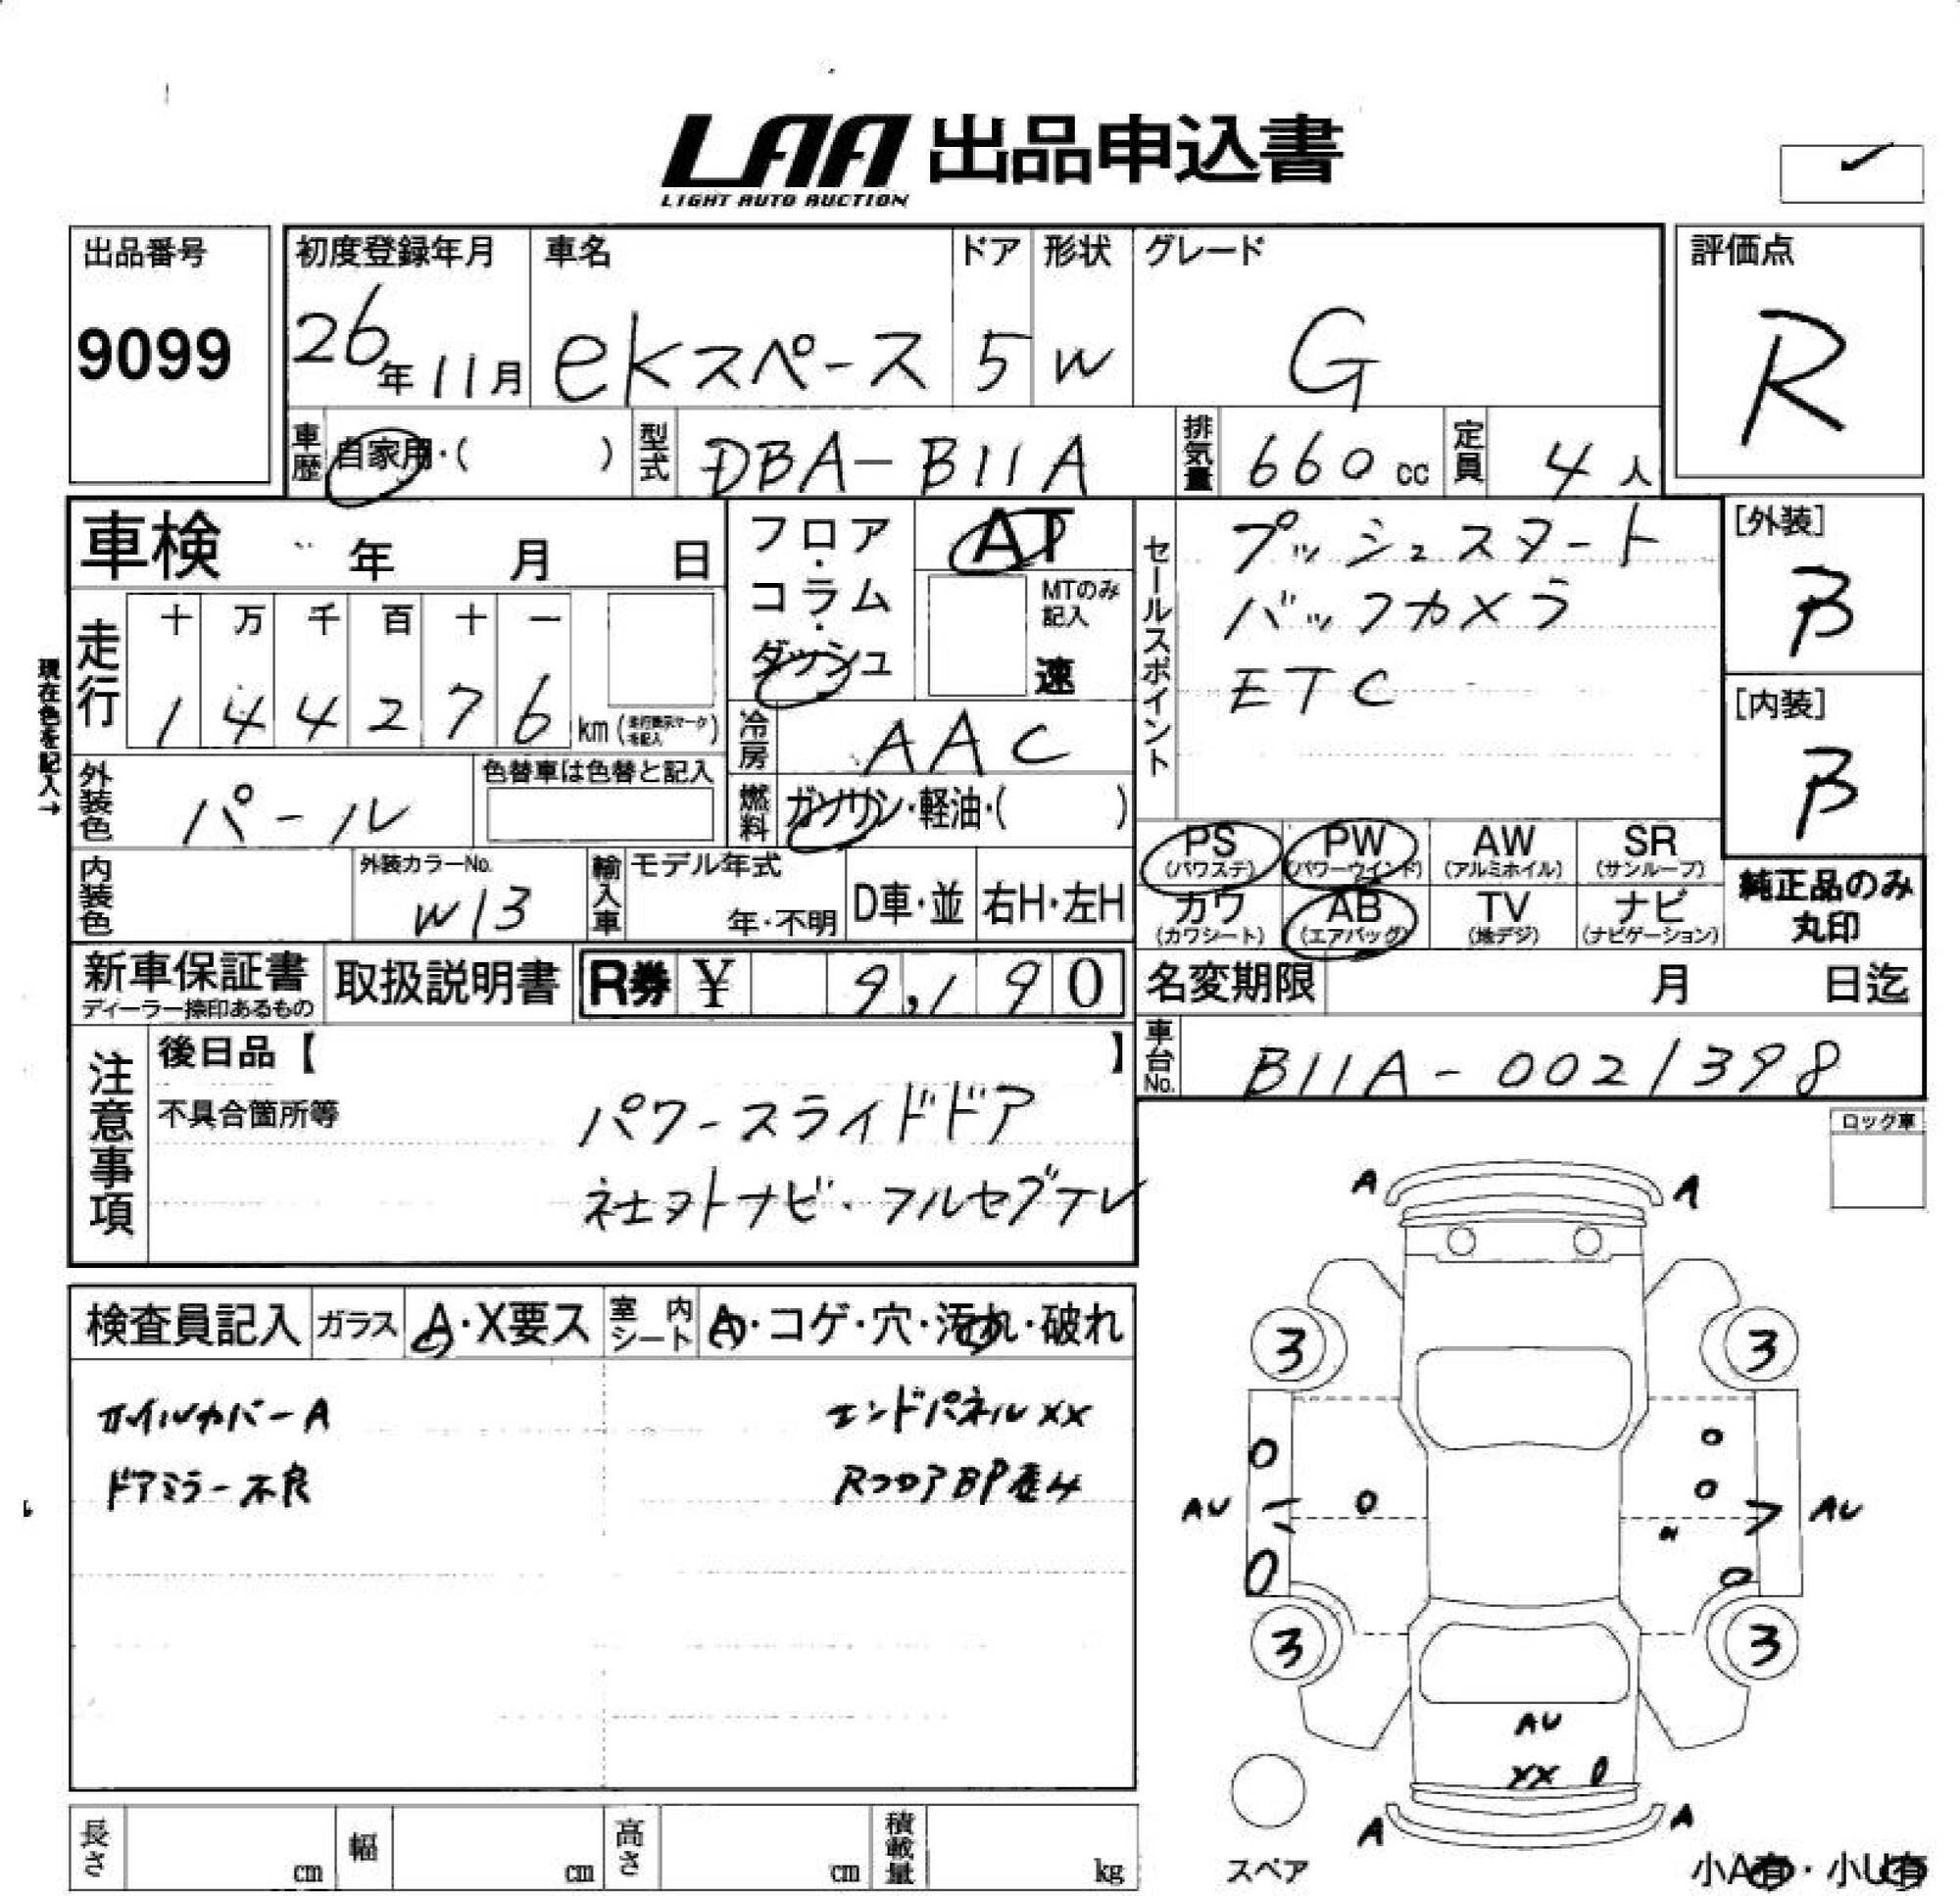 LAA 出品申込書
LIGHT AUTO AUCTION
出品番号
9099
初度登録年月
26年11月
車名
ekスペース
ドア
5
形状
W
グレード
G
評価点
R
車歴 自家用・( )
型式 DBA-B11A
排気量 660cc
定員 4人
車検 年 月 日
フロア・コラム・ダッシュ
AT
MTのみ記入
速
セールスポイント
プッシュスタート
バックカメラ
ETC
[外装]
B
[内装]
B
現在色を記入→
走行
十 万 千 百 十 一
1 4 4 2 7 6 km (走行表示マークを記入)
冷房 AAC
外装色 パール
色替車は色替と記入
燃料 ガソリン・軽油・( )
PS (パワステ)
PW (パワーウインド)
AW (アルミホイル)
SR (サンルーフ)
カワ (カワシート)
AB (エアバッグ)
TV (地デジ)
ナビ (ナビゲーション)
純正品のみ丸印
内装色
外装カラーNo.
W13
輸入車
モデル年式
年・不明
D車・並
右H・左H
新車保証書
ディーラー捺印あるもの
取扱説明書
R券 ¥ 9,190
名変期限 月 日迄
車台No. B11A-0021398
注意事項
後日品【 】
不具合箇所等
パワースライドドア
社外ナビ・フルセグテレ
ロック車
検査員記入
ガラス A・X要ス
室内シート A・コゲ・穴・汚れ・破れ
ホイルカバーA
ドアミラー不良
エンドパネルXX
RフロアBP歪4
A A
3 3
AU AU
3 3
AU
XX
A A
スペア
小A有・小U有
長さ cm
幅 cm
高さ cm
積載量 kg